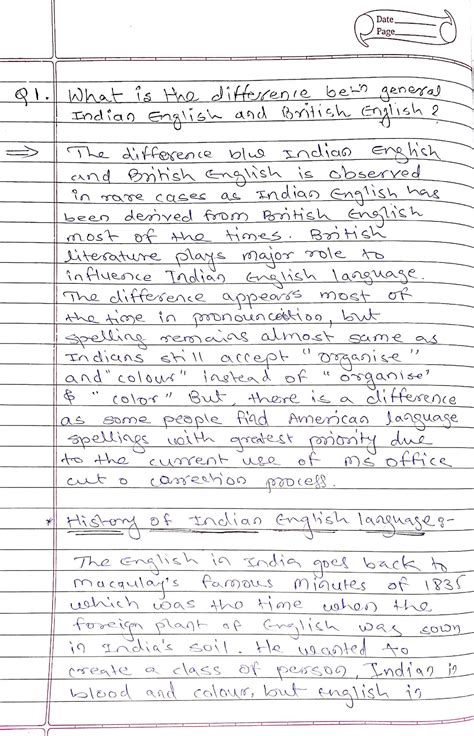 Date
Page
Q1. What is the difference betn general
Indian English and British English ?
⇒ The difference b/w Indian English
and British English is observed
in rare cases as Indian English has
been derived from British English
most of the times. British
literature plays major role to
influence Indian English language.
The difference appears most of
the time in pronouncation, but
spelling remains almost same as
Indians still accept "organise"
and "colour" instead of "organise'
$ "color" But, there is a difference
as some people find American language
spellings with gratest priority due
to the current use of ms office
cut o correction process.
* History of Indian English language:-
The English in India goes back to
Macaulay's famous Minutes of 1835
which was the time when the
foreign plant of English was sown
in India's soil. He wanted to
create a class of person, Indian in
blood and colour, but english in